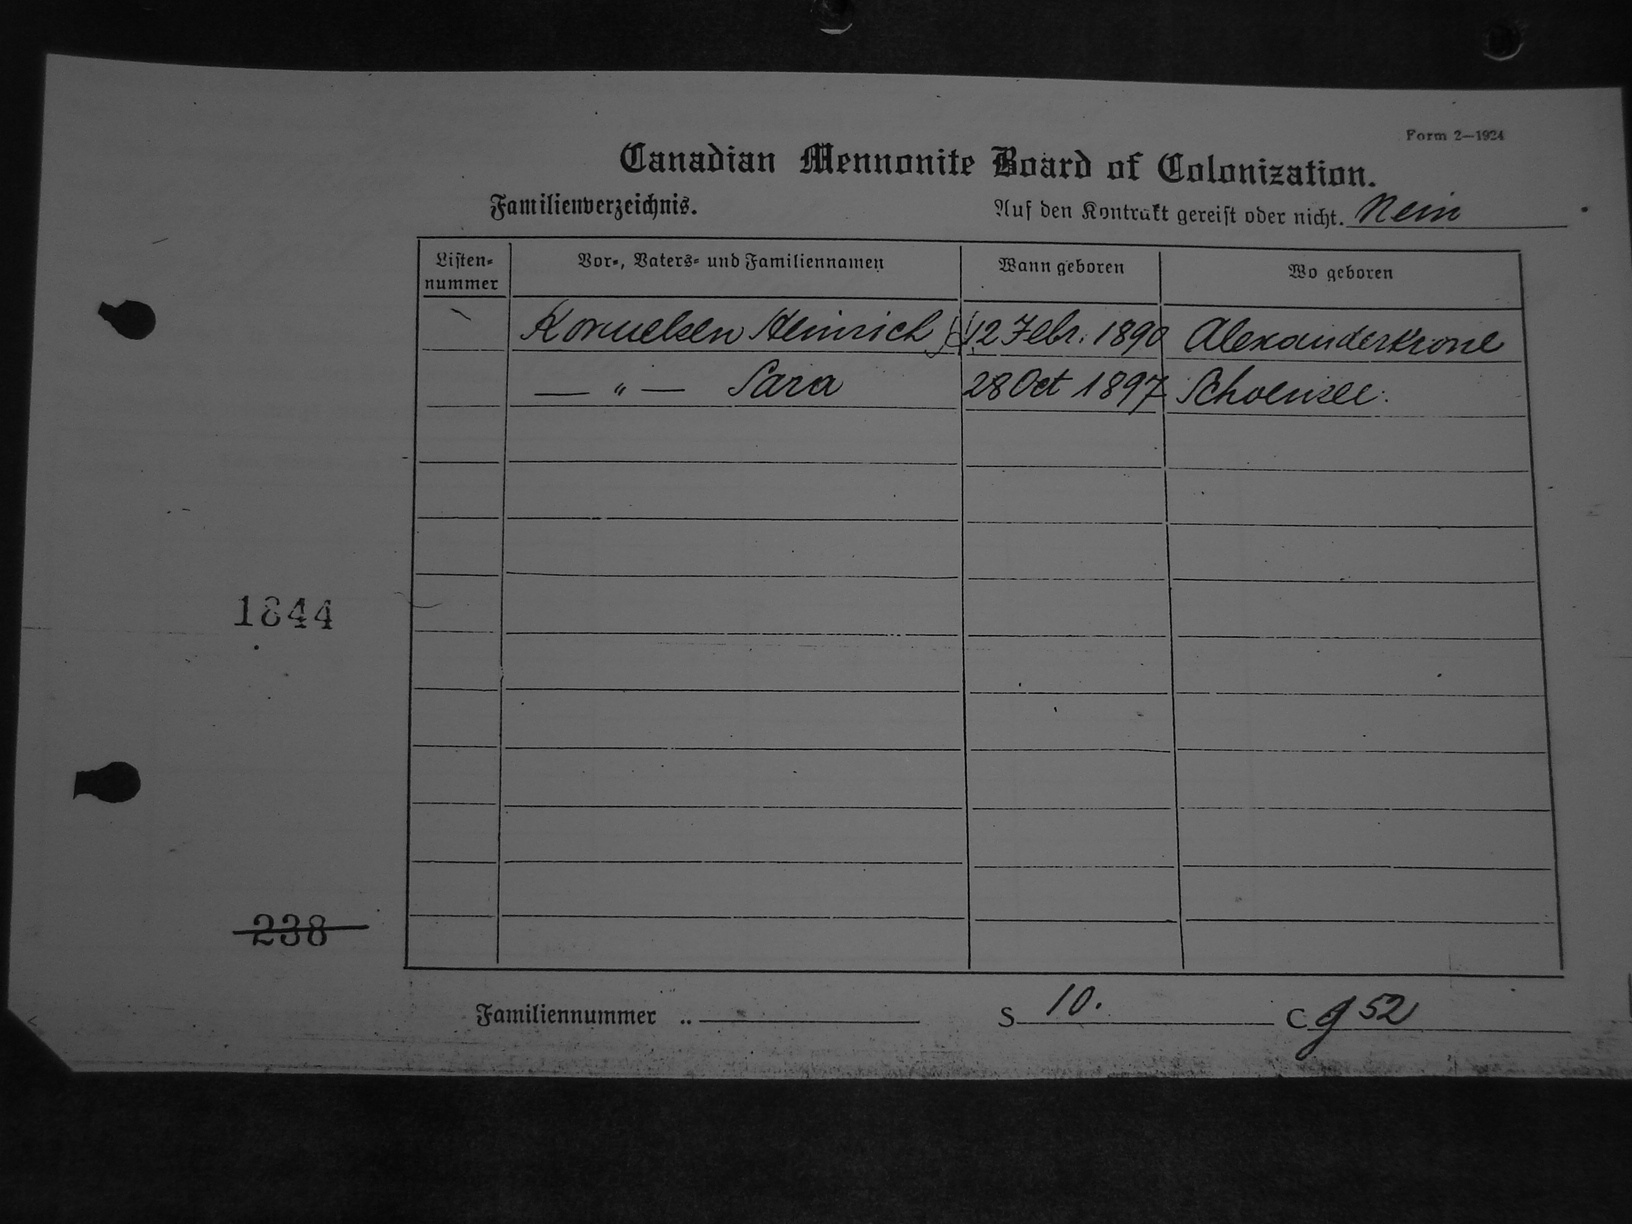 Form 2—1924
Canadian Mennonite Board of Colonization.
Familienverzeichnis. Auf den Kontrakt gereist oder nicht. Nein
Listen-nummer Vor-, Vaters- und Familiennamen Wann geboren Wo geboren
Kornelsen Heinrich 12 Febr. 1890 Alexanderkrone
— " — Sara 28 Oct 1897 Schoensee.
1844
238
Familiennummer .. S 10. C g 52